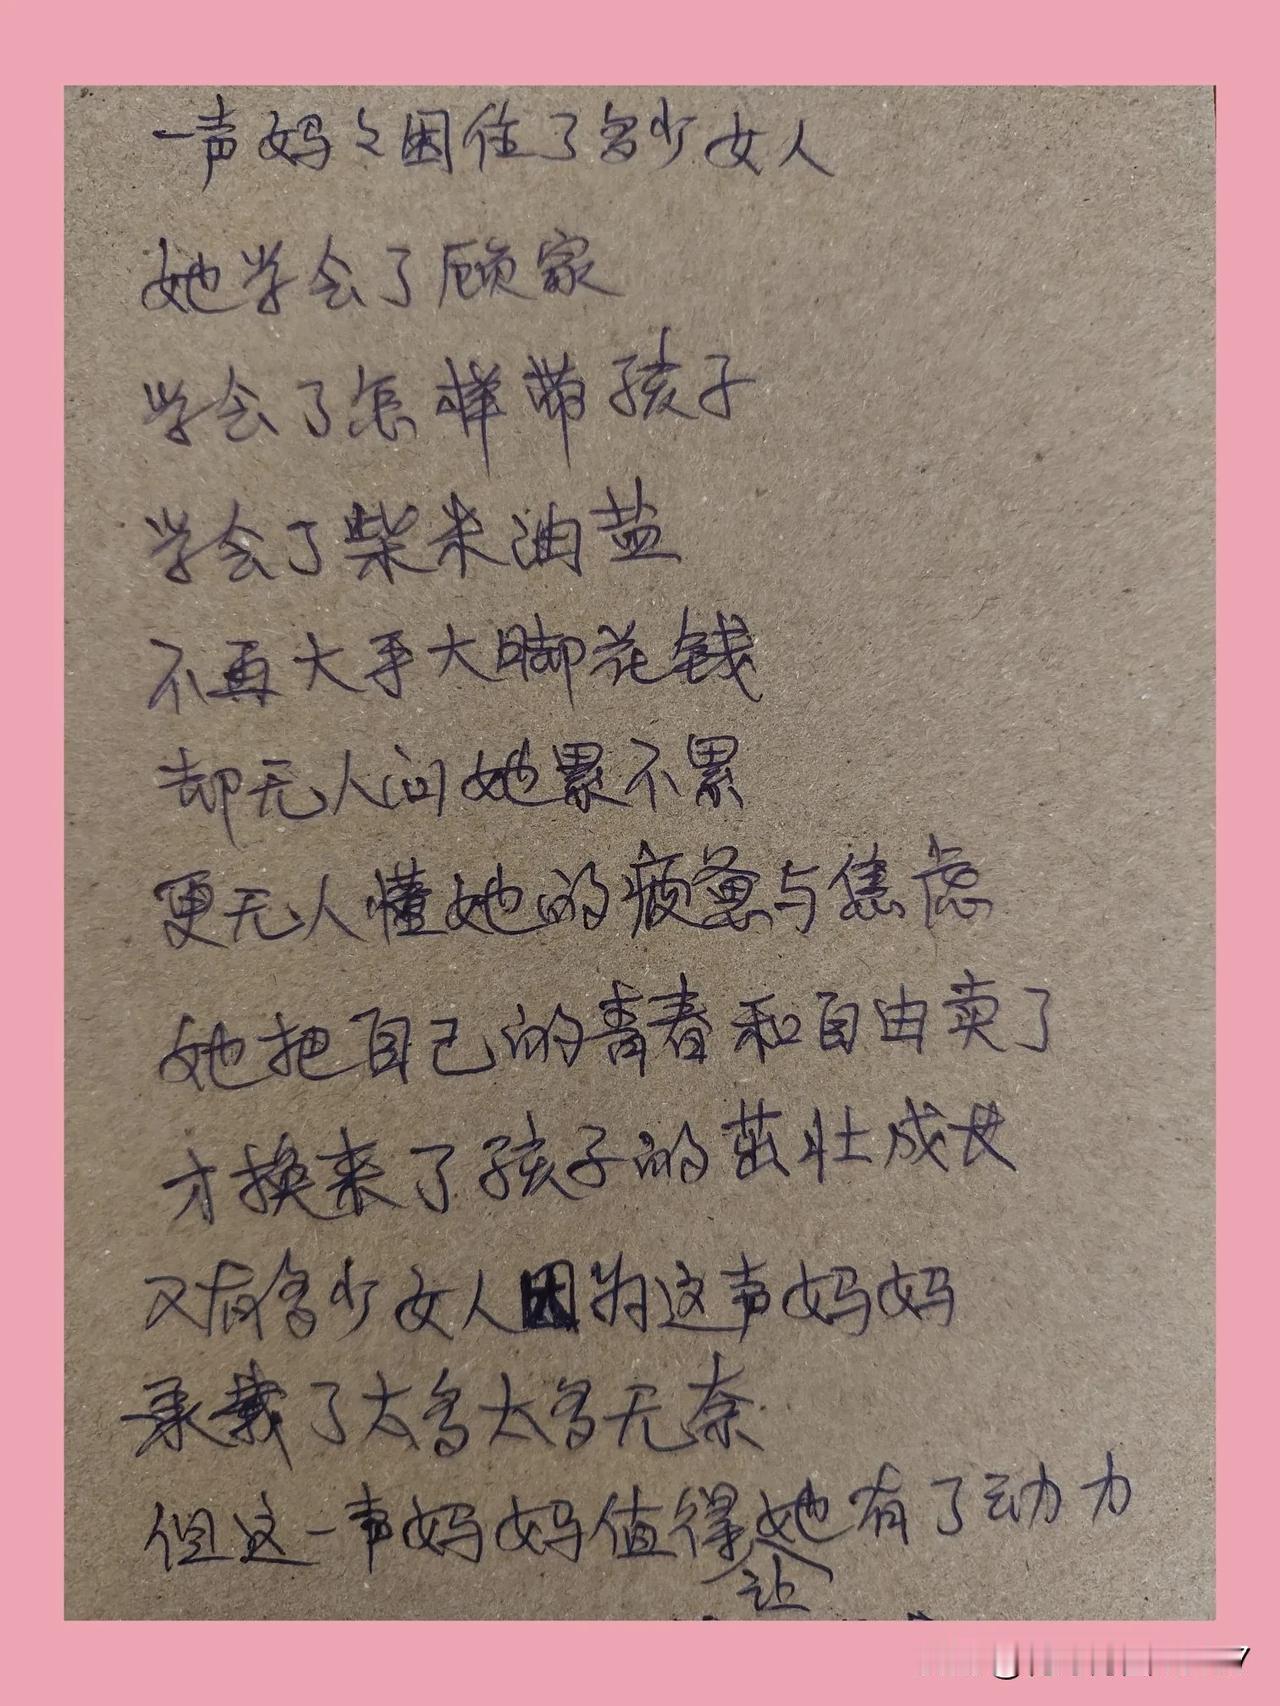 一声妈々困住了多少女人
她学会了顾家
学会了怎样带孩子
学会了柴米油盐
不再大手大脚花钱
却无人问她累不累
更无人懂她的疲惫与焦虑
她把自己的青春和自由卖了
才换来了孩子的茁壮成长
又有多少女人因为这声妈妈
承载了太多太多无奈
但这一声妈妈值得让她有了动力